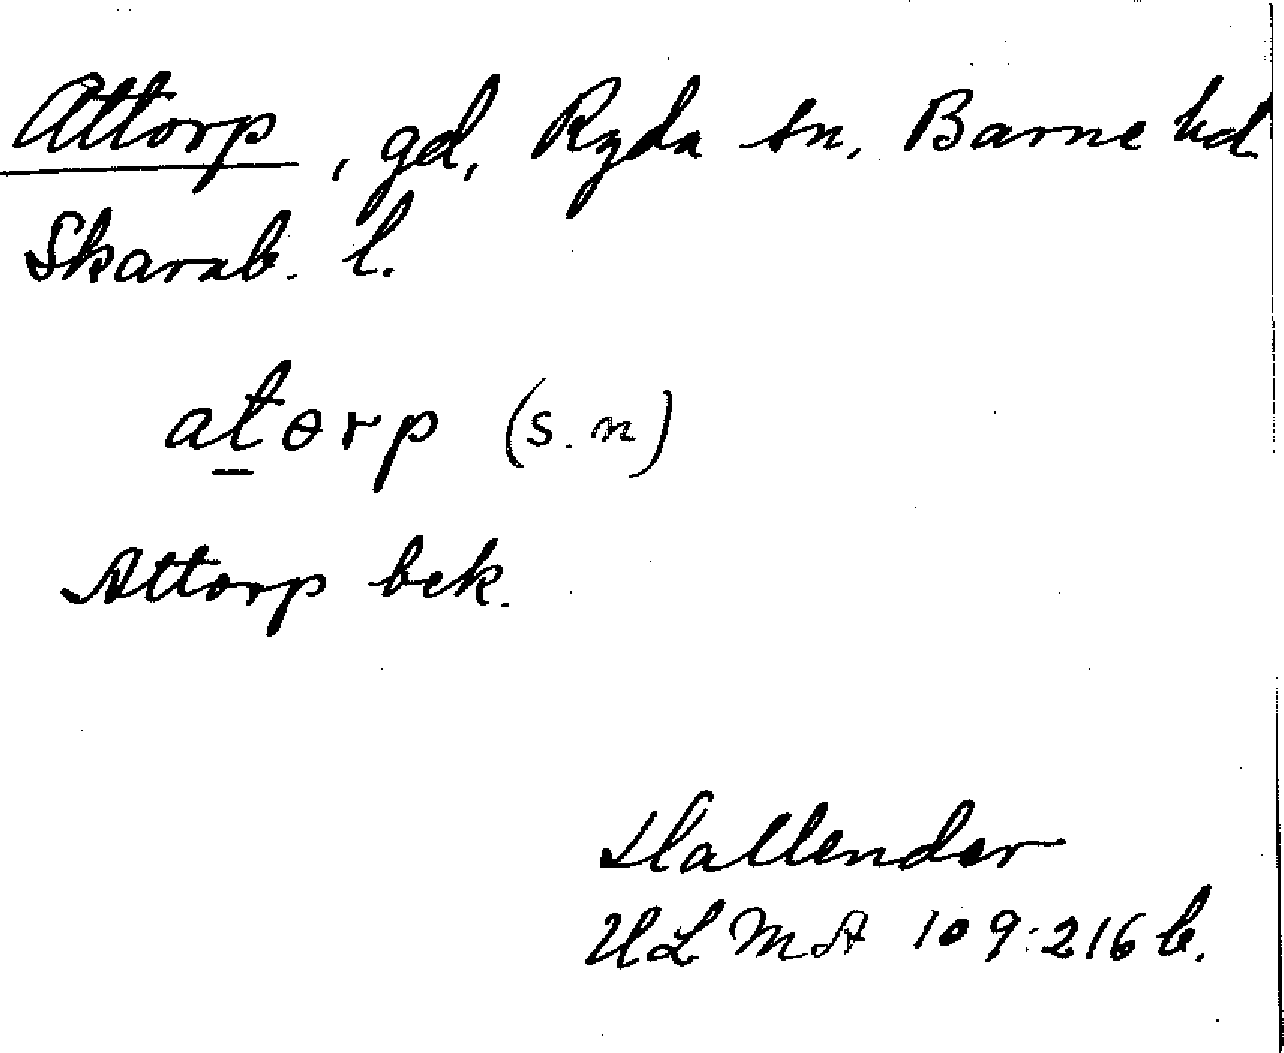 Attorp, gd, Ryda sn, Barne hd
Skarab. l.
at̲ɵrp (s.n)
Attorp bek.
Hallender
ULMA 109:216 b.